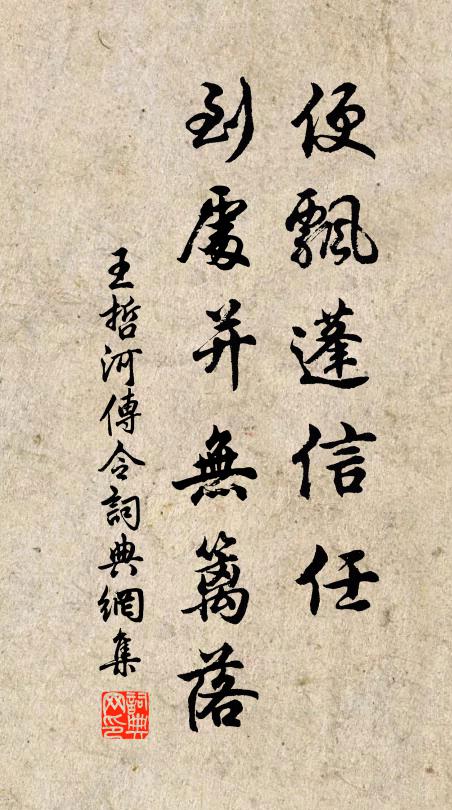 便飄蓬信任
到處并無篱落
王哲河傳令詞典網集
詞典网印